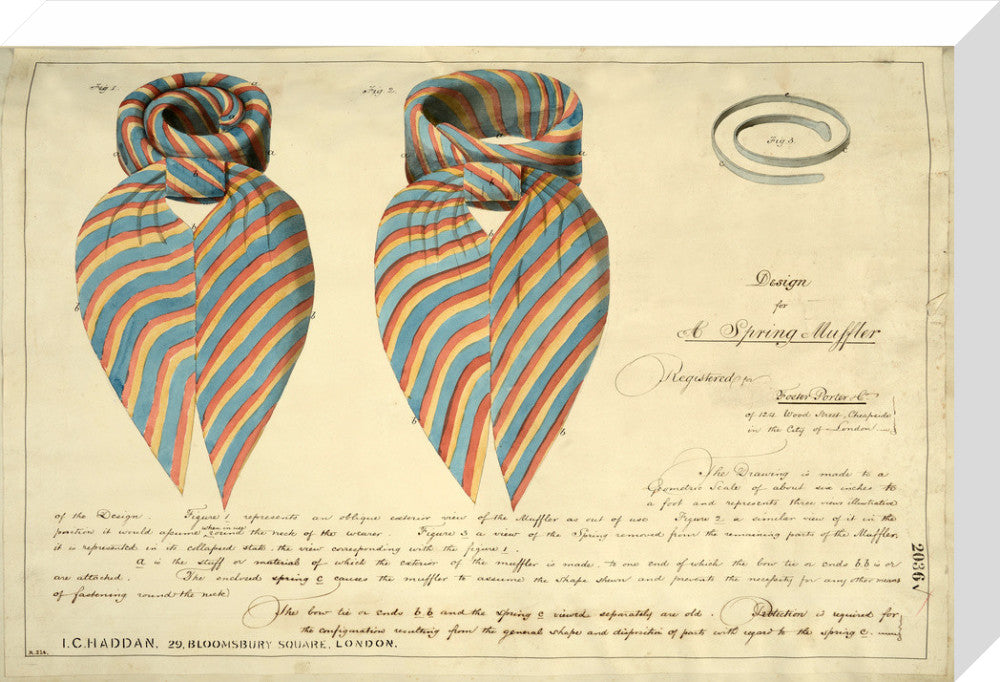 Fig. 1.
a
a
a
a
b
b
b
Fig. 2.
a
a
a
b
b
b
b
Fig. 3.
c
c
c
Design
for
A Spring Muffler
Registered for
Foster Porter & Co
of 124 Wood Street, Cheapside
in the City of London
The Drawing is made to a
Geometric Scale of about six inches to
a foot and represents three views illustrative
of the Design. Figure 1 represents an oblique exterior view of the Muffler as out of use Figure 2 a similar view of it in the
when in use
position it would assume round the neck of the wearer. Figure 3 a view of the Spring removed from the remaining parts of the Muffler,
it is represented in its collapsed state the view corresponding with the figure 1.
a is the stuff or material of which the exterior of the muffler is made, to one end of which the bow tie or ends b.b is or
are attached. The enclosed spring c causes the muffler to assume the shape shewn and prevents the necessity for any other means
of fastening round the neck
The bow tie or ends b b and the spring c viewed separately are old. Protection is required for
the configuration resulting from the general shape and disposition of parts with regard to the spring c.
2036
I.C. HADDAN, 29, BLOOMSBURY SQUARE, LONDON.